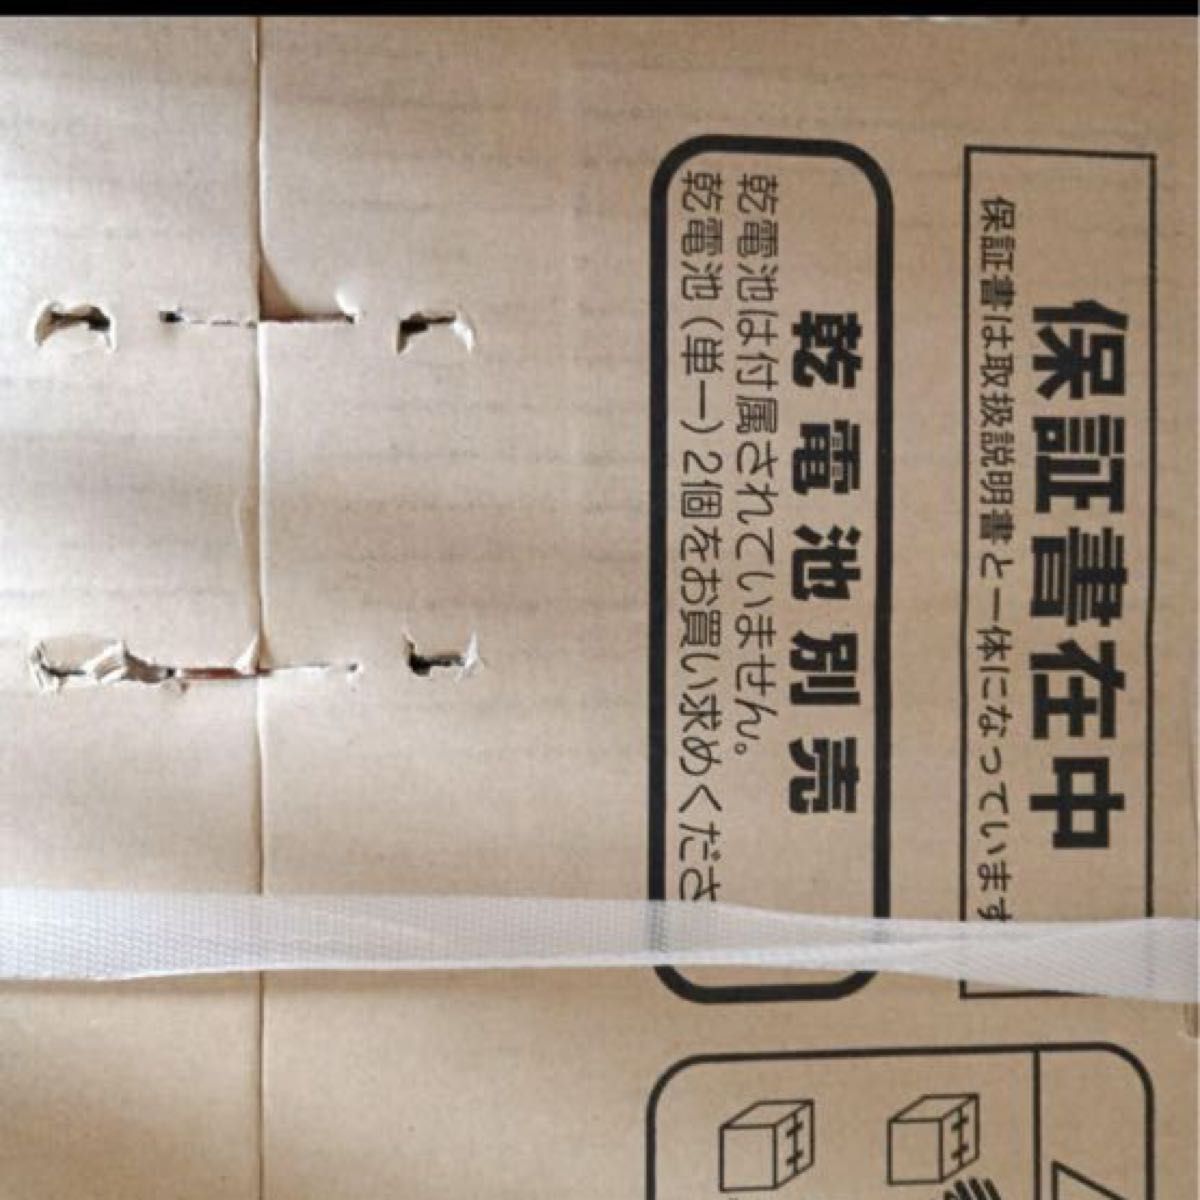 保証書在中
保証書は取扱説明書と一体になっています
乾電池別売
乾電池は付属されていません。
乾電池（単一）2個をお買い求めくださ